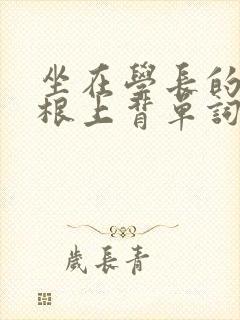 坐在學長的
根上背單詞
歲長青